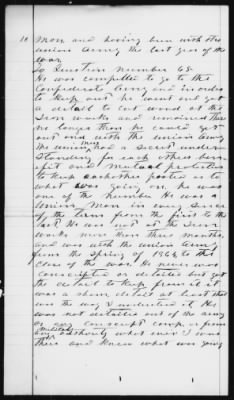 10 Mom and having him with the
union army the last year of the
war
To Question number 65
He was compelled to go to the
Confederate Army and in order
to keep out he went and got
a detail to cut wood at the
Iron works and remained there
no longer than he could get
out and with the union army
The union men had a secret under
standing for each others
and mutual protection
to keep eachother posted as to
what was going on. he was
one of the number He was a
Union Man in every sense
of the term from the first to the
last He was not at the Iron
works more than three months
and was with the union army
from the Spring of 1864 to the
close of the war. He never was
conscripted or detailed but got
the detail to keep from it it
was a sham detail at least that
was the way I understood it He
was not detailed out of the army
or any conscript camp or from
any military authority what ever I was
there and knew what was going